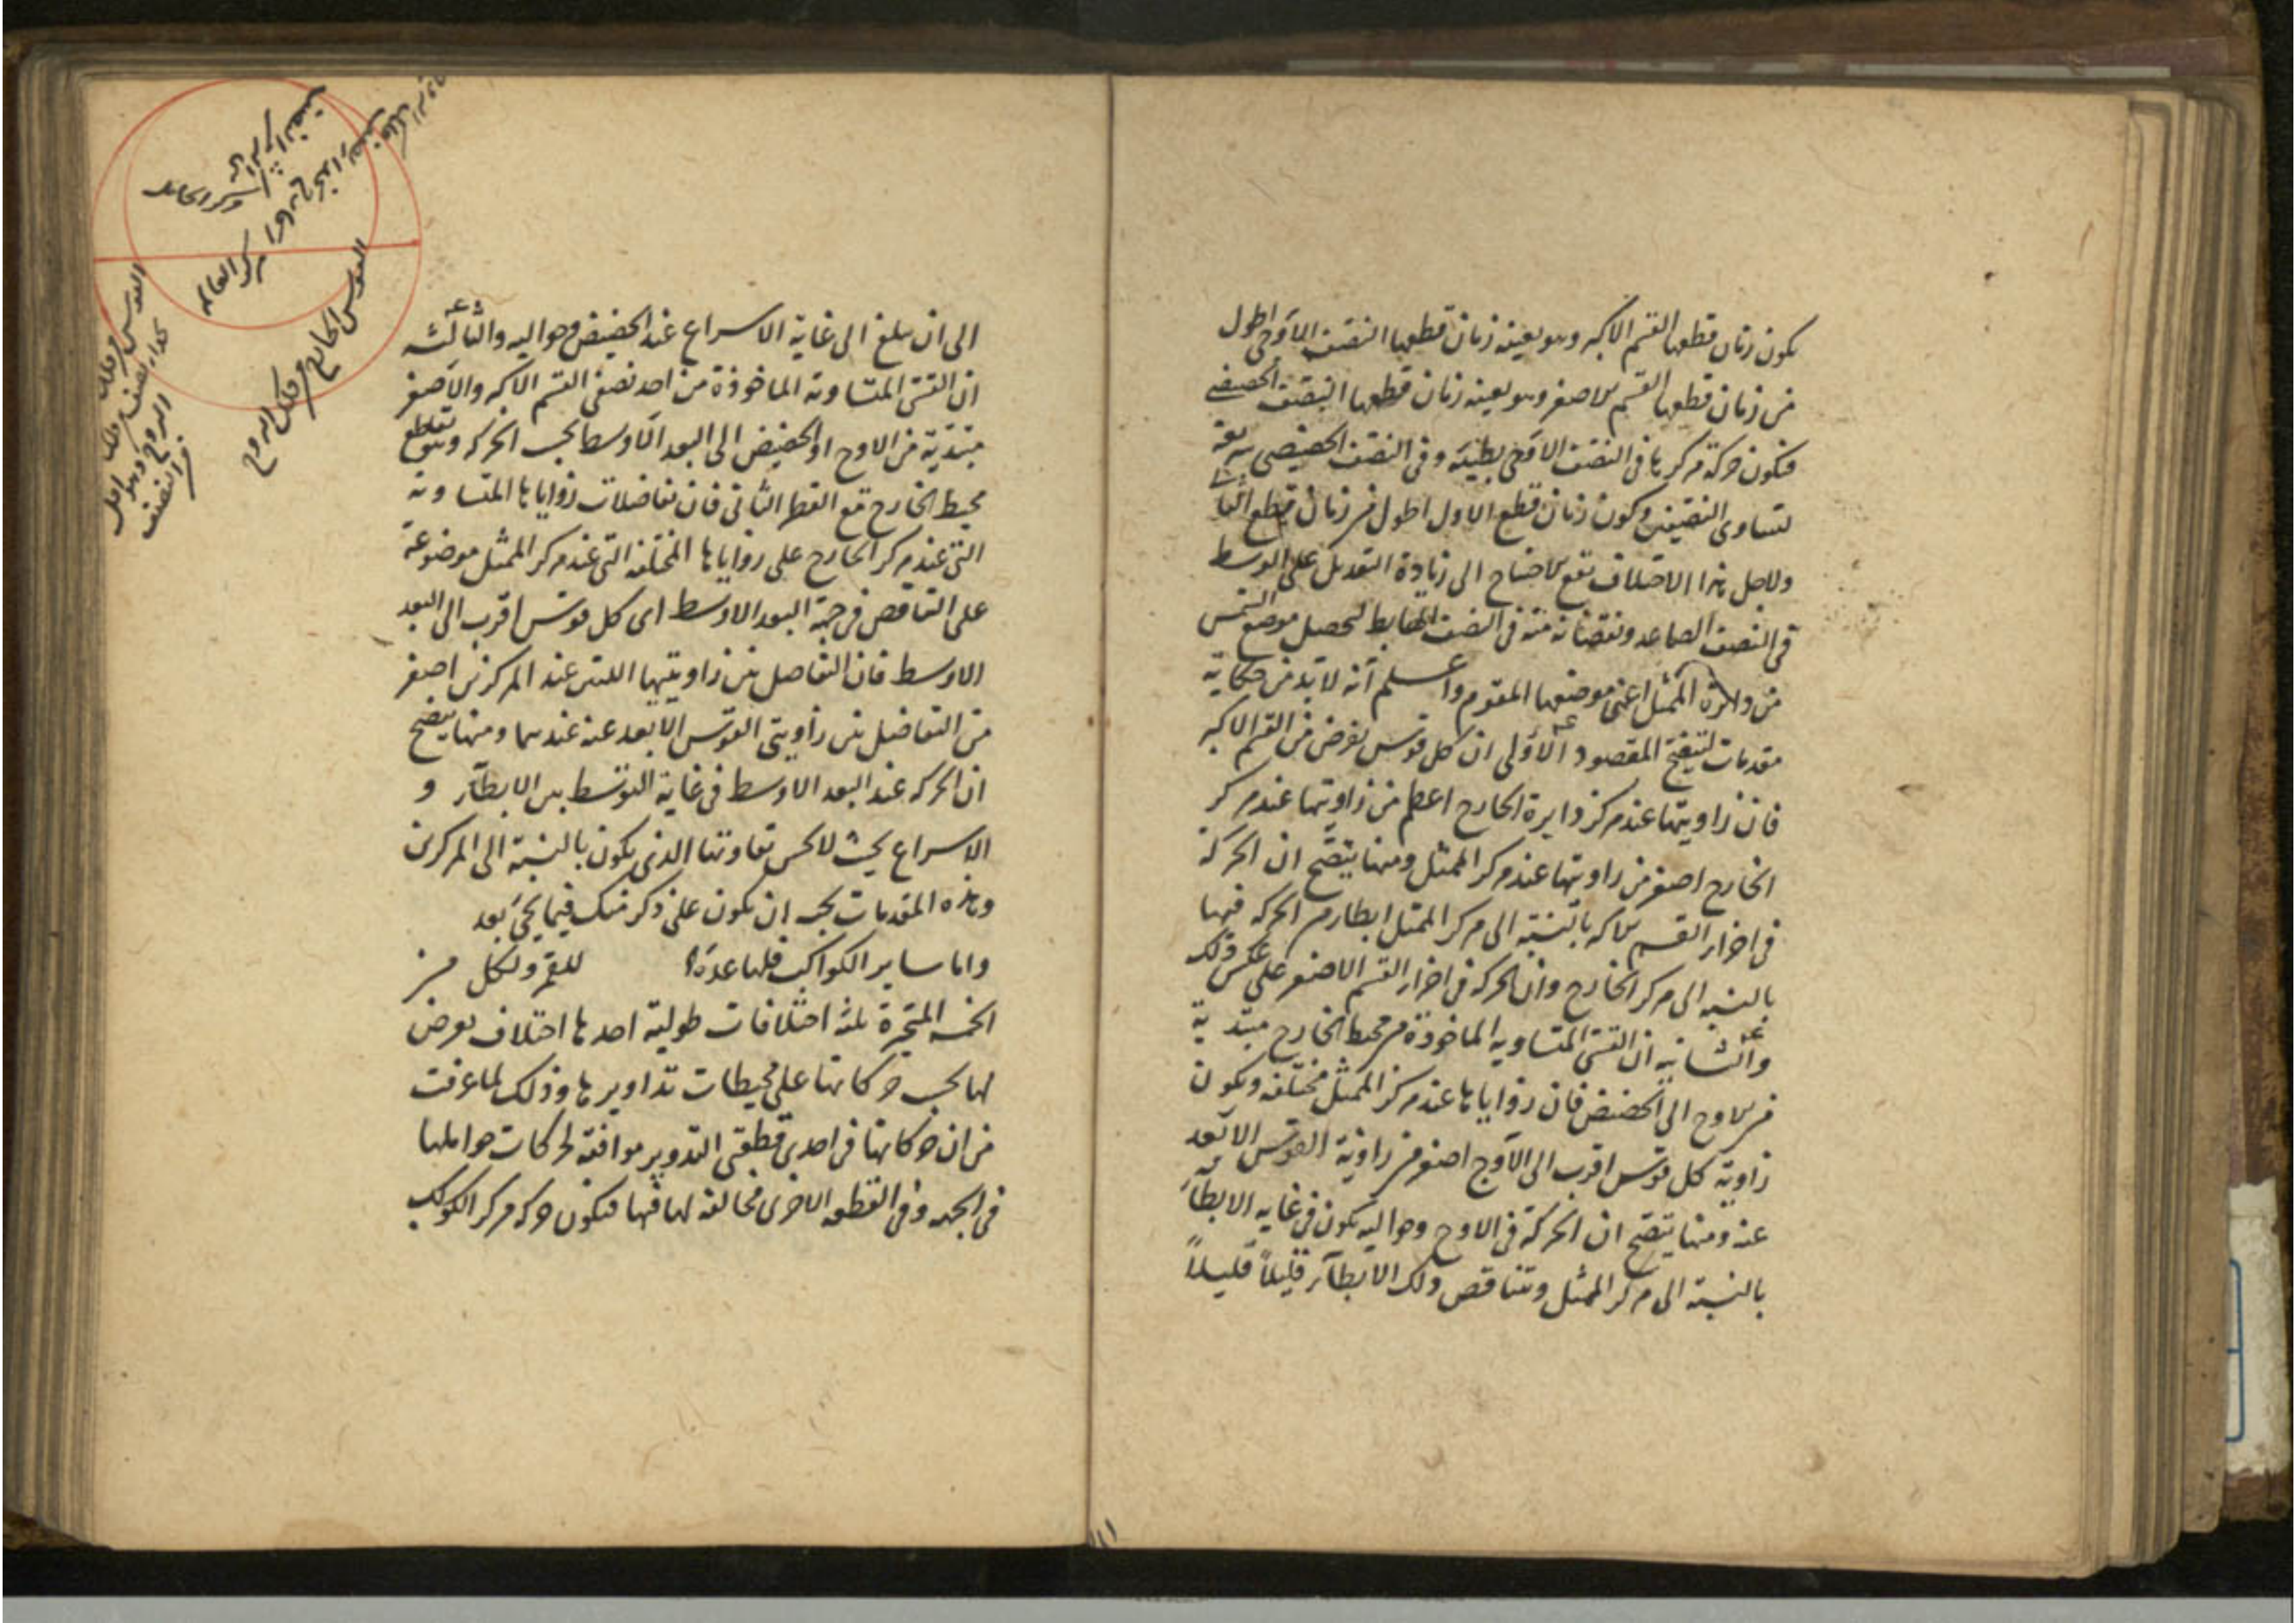 يكون زمان قطعها القسم الاكبر وهو بعينه زمان قطعها النصف الاوجى اطول
من زمان قطعها القسم الاصغر وهو بعينه زمان قطعها النصف الحضيضى
فتكون حركة مركزها فى النصف الاوجى بطيئة وفى النصف الحضيضى سريعة
لتساوى النصفين وكون زمان قطع الاول اطول من زمان قطع الثانى
ولاجل هذا الاختلاف تقع الاحتياج الى زيادة التعديل على الوسط
فى النصف الصاعد ونقصانه منه فى النصف الهابط لتحصل موضع الشمس
من دائرة الممثل اعنى موضعها المقوم واعلم انه لابد من حكاية
مقدمات لتنقيح المقصود الاولى ان كل قوس تفرض من القسم الاكبر
فان زاويتها عند مركز دايرة الخارج اعظم من زاويتها عند مركز
الخارج اصغر من زاويتها عند مركز الممثل ومنها يتضح ان الحركة
فى اجزاء القسم الاكبر بالنسبة الى مركز الممثل ابطاء من الحركة فيها
بالنسبه الى مركز الخارج وان الحركة فى اجزاء القسم الاصغر على عكس ذلك
والثانيه ان القسى المتساويه الماخوذة من محيط الخارج مبتدية
من الاوج الى الحضيض فان زواياها عند مركز الممثل مختلفه ويكون
زاوية كل قوس اقرب الى الاوج اصغر من زاوية القوس الابعد
عنه ومنها يتضح ان الحركة فى الاوج وحواليه يكون فى غايه الابطاء
بالنسبة الى مركز الممثل ويتناقص ذلك الابطآء قليلاً قليلاً
الى ان يبلغ الى غاية الاسراع عند الحضيض وحواليه والثالثه
ان القسى المتساوية الماخوذة من احد نصفى القسم الاكبر والاصغر
مبتدية من الاوج او الحضيض الى البعد الاوسط بحسب الحركه وهو تقاطع
محيط الخارج مع القطر الثانى فان تفاضلات زواياها المتساوية
التى عند مركز الخارج على زواياها المختلفه التى عند مركز الممثل موضوعة
على التناقص فى جهة البعد الاوسط اى كل قوس اقرب الى البعد
الاوسط فان التفاضل بين زاويتيها اللتين عند المركزين اصغر
من التفاضل بين زاويتى القوس الابعد عنه عندهما ومنها يتضح
ان الحركه عند البعد الاوسط فى غاية التوسط بين الابطآء و
الاسراع بحيث لا يحس تفاوتها الذى يكون بالنسبة الى المركزين
وهذه المقدمات يجب ان يكون على ذكر منك فيما يجئ بعد
واما ساير الكواكب فلها عدة للقمر ولكل من
الخمسه المتحيرة ثلثه اختلافات طولية احدها اختلاف يعرض
لها بحسب حركاتها على محيطات تداويرها وذلك لما عرفت
من ان حركاتها فى احدى قطعتى التدوير موافقة لحركات حواملها
فى الجهه وفى القطعه الاخرى مخالفه لها فيها فتكون حركه مركز الكوكب
مركز الخارج
مركز العالم
القوس الخارج
وفلك البروج